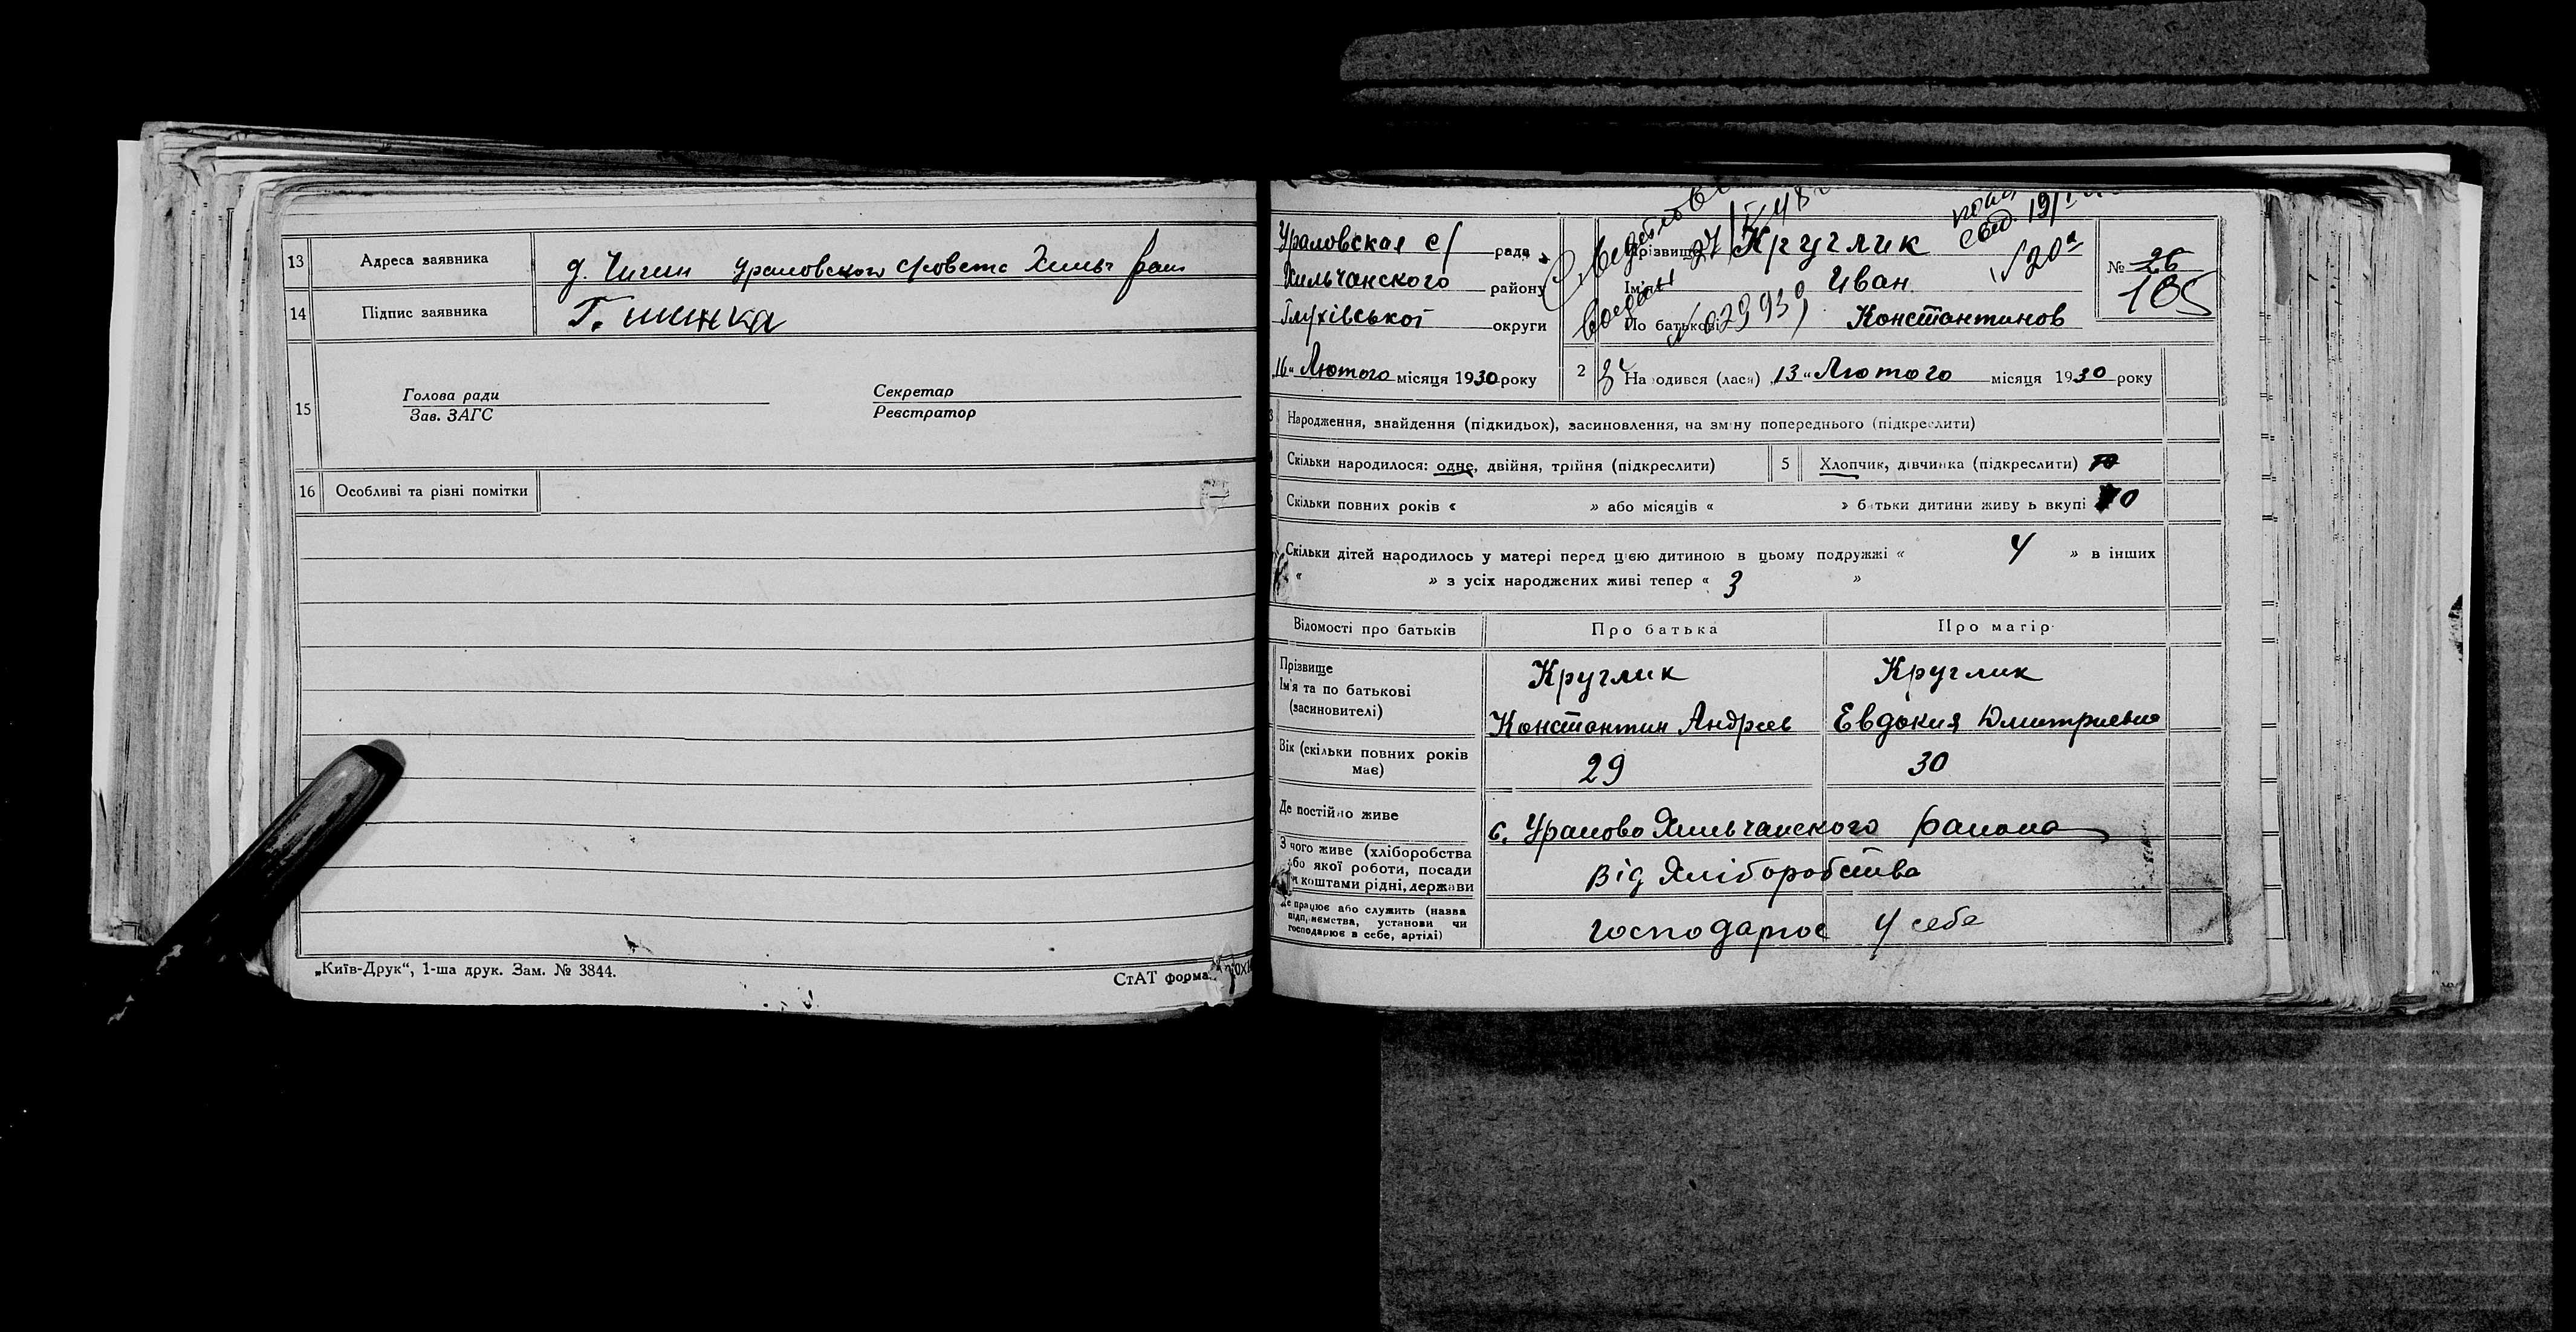 13 Адреса заявника д. Чигин Ураловского с/совета Хильч
14 Підпис заявника
15 Голова ради Секретар
Зав. ЗАГС Реєстратор
16 Особливі та різні помітки
„Київ-Друк“, 1-ша друк. Зам. № 3844.
СтАТ форма
Ураловская с/ рада
Хильчанского району
Глухівської округи
„16“ Лютого місяця 1930 року
Прізвище Круглик
Ім'я Иван
По батькові Константинов
№ 26
105
2 Народився (лася) „13“ Лютого місяця 1930 року
Народження, знайдення (підкидьох), засиновлення, на зміну попереднього (підкреслити)
Скільки народилося: одне, двійня, трійня (підкреслити) 5 Хлопчик, дівчинка (підкреслити)
Скільки повних років « » або місяців « » батьки дитини живуть вкупі 10
Скільки дітей народилось у матері перед цією дитиною в цьому подружжі « 4 » в інших
« » з усіх народжених живі тепер « 3 »
Відомості про батьків Про батька Про матір
Прізвище Круглик Круглик
Ім'я та по батькові
(засиновителі) Константин Андреев Евдокия Дмитриевна
Вік (скільки повних років
має) 29 30
Де постійно живе с. Уралово Хильчанского района
З чого живе (хліборобства
або якої роботи, посади від Хліборобства
чи коштами рідні, держави
Де працює або служить (назва
підприємства, установи чи господарює у себе
господарює в себе, артілі)